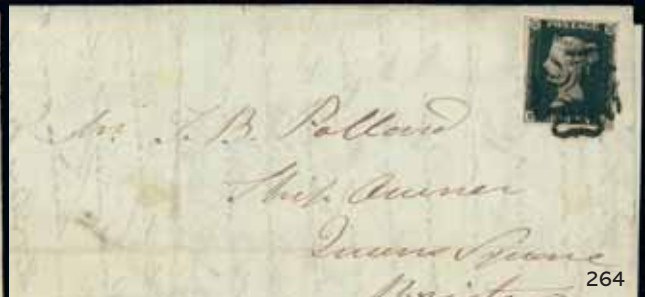 POSTAGE
Mr. J. B. Pollard
Ship Owner
Queens Square
264